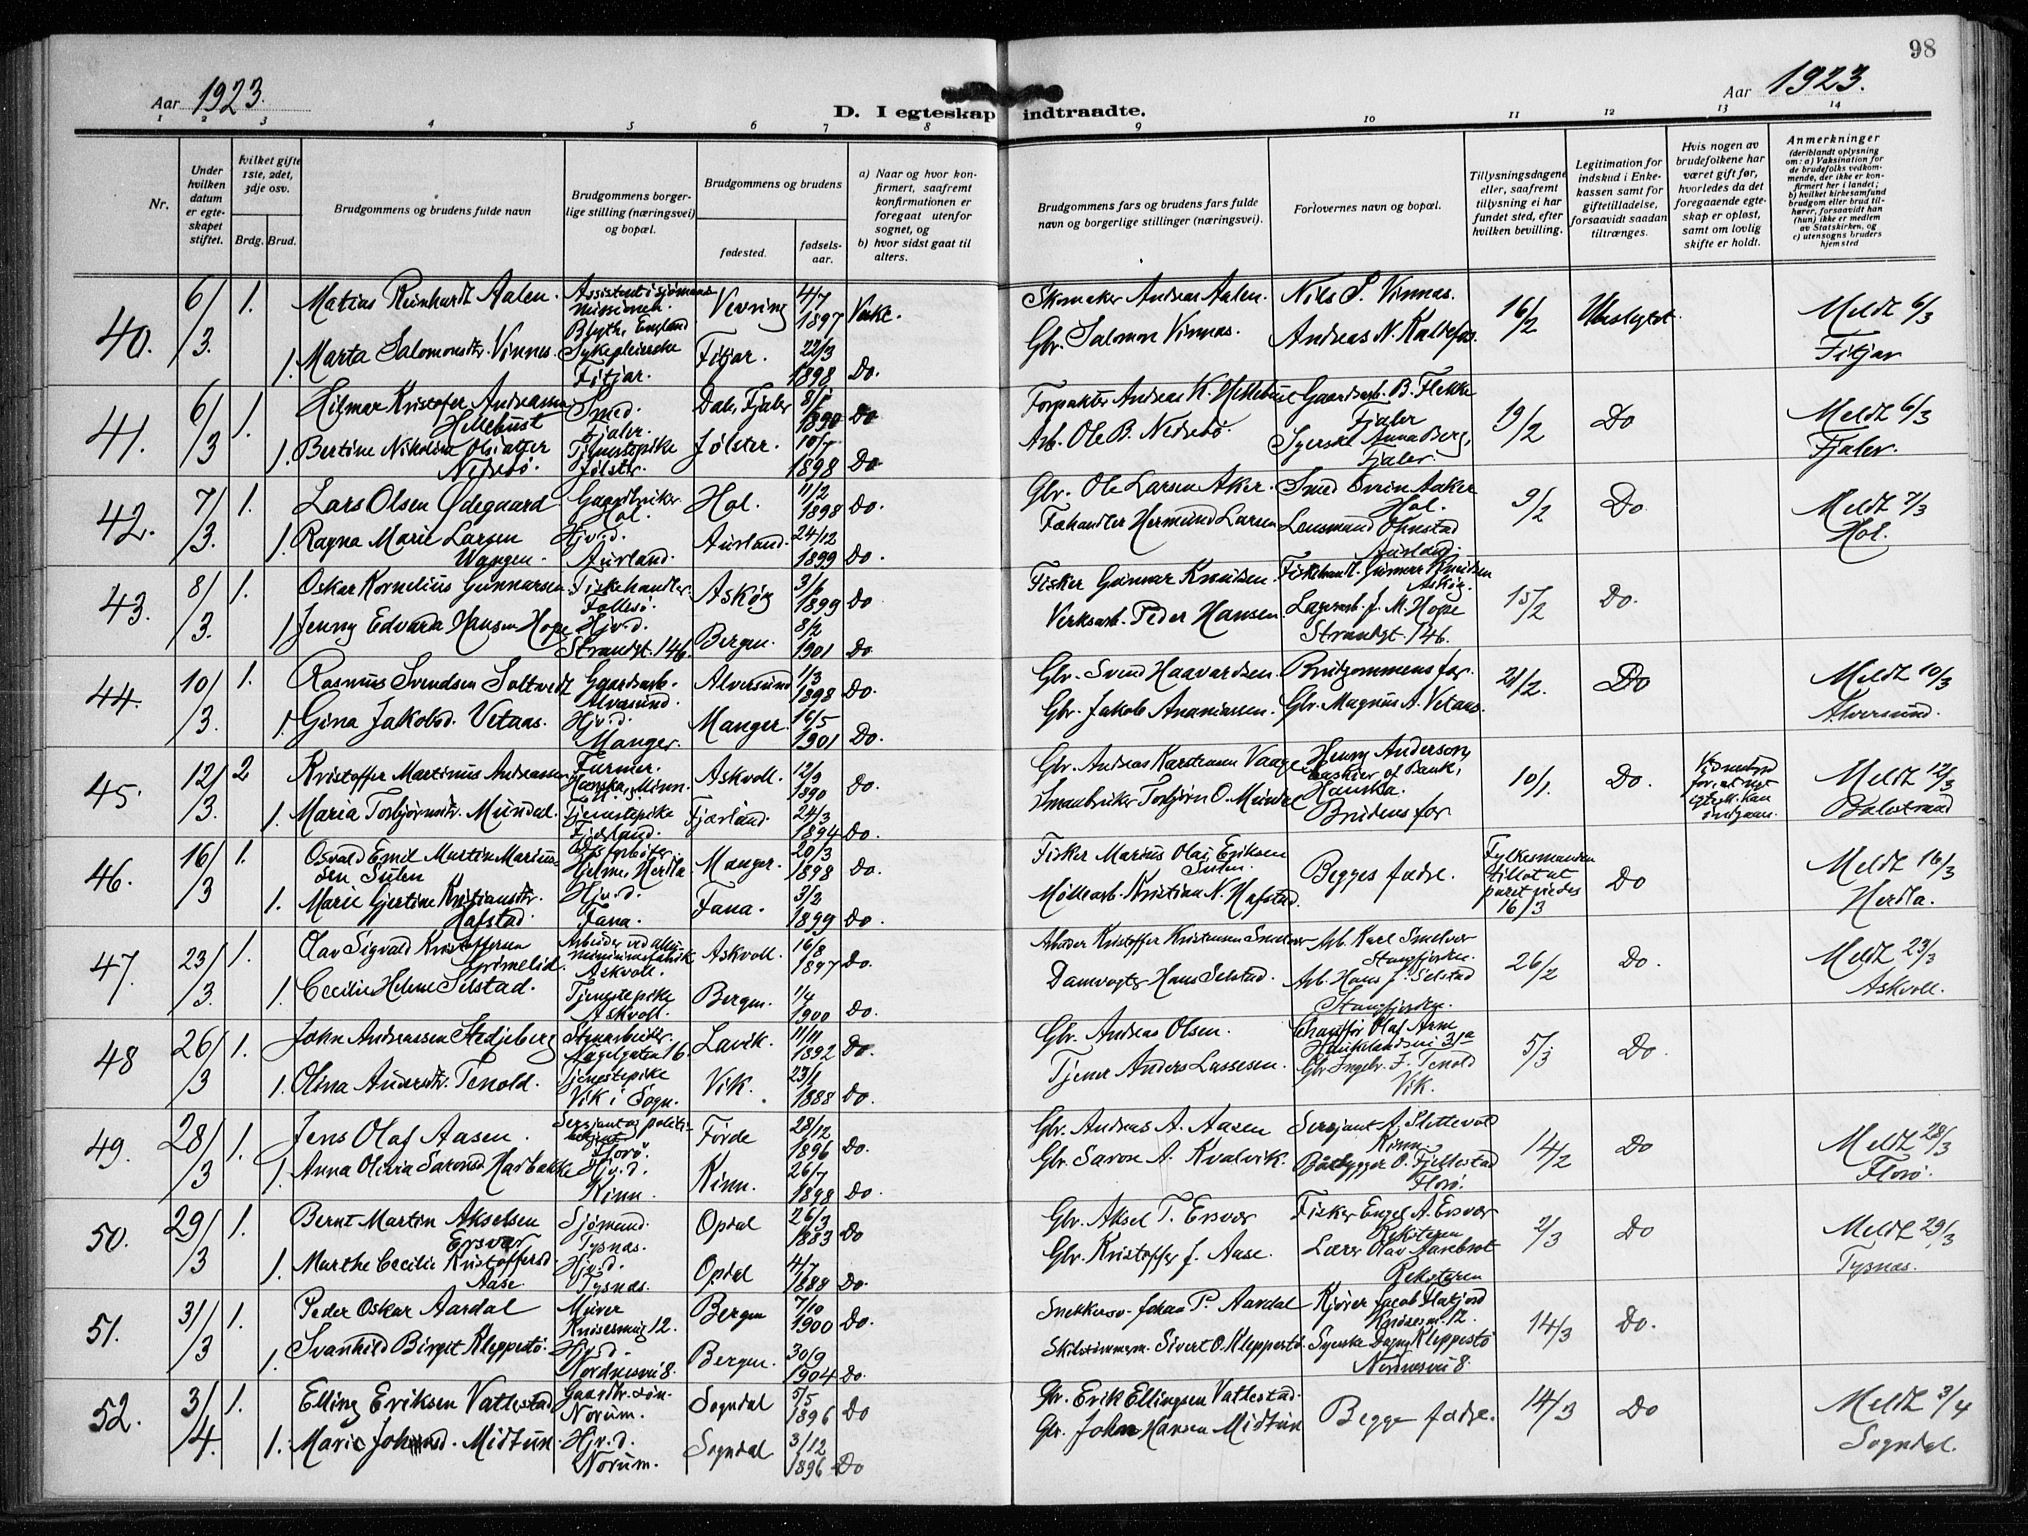 98
Aar 1923.
D. I egteskap indtraadte.
Aar 1923.
1 2 3 4 5 6 7 8 9 10 11 12 13 14
Nr.
Under hvilken datum er egteskapet stiftet.
Hvilket gifte 1ste, 2det, 3dje osv.
Brdg. Brud.
Brudgommens og brudens fulde navn
Brudgommens borgerlige stilling (næringsvei) og bopæl.
Brudgommens og brudens
fødested.
fødselsaar.
a) Naar og hvor konfirmert, saafremt konfirmationen er foregaat utenfor sognet, og
b) hvor sidst gaat til alters.
Brudgommens fars og brudens fars fulde navn og borgerlige stillinger (næringsvei).
Forlovernes navn og bopæl.
Tillysningsdagene eller, saafremt tillysning ei har fundet sted, efter hvilken bevilling.
Legitimation for indskud i Enkekassen samt for giftetilladelse, forsaavidt saadan tiltrænges.
Hvis nogen av brudefolkene har været gift før, hvorledes da det foregaaende egteskap er opløst, samt om lovlig skifte er holdt.
Anmerkninger
(deriblandt oplysning om: a) Vaksination for de brudefolks vedkommende, der ikke er konfirmert her i landet; b) hvilket kirkesamfund brudgom eller brud tilhører, forsaavidt han (hun) ikke er medlem av Statskirken, og c) utensogns bruders hjemsted
40. 6/3. 1. Matias Reinhardt Aalen. Assistent i sjømansmissionen. Blyth, England Vevring 4/7 1897 Vakt. Skomaker Andreas Aalen. Nils S. Vinnas. 16/2 Ubeslegtet Meldt 6/3 Fitjar
1. Marta Salomonsdtr. Vinnes. Sykepleierske Fitjar. Fitjar. 22/3 1898 Do. Gbr. Salomon Vinnas. Andreas N. Kaltefos.
41. 6/3 1. Hilmar Kristofer Andreassen Hellebust Smed. Fjaler. Dale, Fjaler 1890 Do Forpakter Andreas K. Hellebust Gaardsarb. B. Flekke Fjaler 19/2 Do Meldt 6/3 Fjaler.
1. Bertine Nikoline Nedrebø. Tjenestepike Jølster. Jølster. 10/7 1898 Do Arb. Ole B. Nedrebø. Syerske Anna Berg, Fjaler.
42. 7/3. 1. Lars Olsen Ødegaard Gaardbruker Hol. Hol. 11/2 1898 Do. Gbr. Ole Larsen Aker. Smed Svein Aaker Hol. 9/2 Do. Meldt 7/3 Hol.
1. Ragna Marie Larsen Wangen. Hjv.d. Aurland. Aurland. 24/12 1899 Do. Fæhandler Hermund Larsen Lensmand Ohnstad Aurland.
43. 8/3. 1. Oskar Kornelius Gunnarsen Fiskehandler. Follesø. Askøy 1899 Do Fisker Gunnar Knudsen. Fiskehandl. Gunnar Knudsen Askøy. 15/2 Do.
1. Jenny Edvarda Hansen Hope Hjv.d. Strandgt. 146. Bergen. 8/2 1901 Do Verksarb. Peder Hansen. Lagerarb. J. M. Hope Strandgt. 146.
44. 10/3. 1. Rasmus Svendsen Soltvedt Gaardsarb. Alversund. Alversund 1/3 1898 Do. Gbr. Svend Haavardsen. Brudgommens far. 21/2. Do Meldt 10/3 Alversund.
1. Gina Jakobsd. Vetaas. Hjv.d. Manger. Manger. 16/5 1901 Do. Gbr. Jakob Ananiassen. Gbr. Magnus A. Vetaas.
45. 12/3. 2 Kristoffer Martinus Andreassen Farmer. Hanska, Minn. Askvoll. 12/3 1890 Do Gbr. Andreas Karstensen Vaage Henry Anderson, Caskier of Bank, Hanska. 10/1. Do. Meldt 12/3 Balestrand
1. Maria Torbjørnsdtr. Mundal. Tjenestepike Fjærland. Fjærland 24/3 1894 Do. Smaabruker Torbjørn O. Mundal Brudens far
46. 16/3 1. Osvald Emil Martin Mariussen Sulen Hjelme, Herdla. Manger. 20/3 1898 Do. Fisker Marius Olai Eriksen Sulen. Begges fædre. Fylkesmanden tillot at paret viedes 16/3 Do Meldt 16/3 Herdla.
1. Marie Gjertine Kristiansdtr. Hafstad. Hjv.d. Fana. Fana. 3/2 1899 Do. Møllearb. Kristian N. Hafstad.
47. 23/3. 1. Olav Sigvald Kristoffersen Grimelid. Arbeider ved aluminiumsfabrik Askvoll. Askvoll. 16/8 1897 Do. Arbeider Kristoffer Kristensen Smelvær Arb. Karl Smelvær Stongfjorden. 26/2 Do. Meldt 23/3 Askvoll.
1. Cecilie Helene Selstad. Tjenestepike Askvoll. Bergen. 1/4 1900 Do. Damvogter Hans Selstad. Arb. Hans J. Selstad Stongfjorden.
48 26/3 1. John Andreassen Stedjeberg Stenarbeider. Aagotgaten 16. Lavik. 11/11 1892 Do. Gbr. Andreas Olsen. Chauffør Olaf Arne Haukelandsvei 31a 5/3 Do.
1. Olina Andersdtr. Tenold. Tjenestepike Vik i Sogn. Vik. 23/1 1888 Do. Tjener Anders Lassesen. Gbr. Ingebr. J. Tenold Vik.
49. 28/3 1. Jens Olaf Aasen. Sersjant og politibetjent Florø. Førde 28/12 1896 Do. Gbr. Andreas A. Aasen Sersjant A. Slettevold Kinn. 14/2 Do Meldt 28/3 Florø.
1. Anna Olivia Saronsd. Harbakke Hjv.d. Kinn. Kinn. 26/7 1898 Do. Gbr. Saron A. Kvalvik. Båtbygger O. Fjellestad Florø.
50. 29/3 1. Bernt Martin Akselsen Ersvær Sjømand. Tysnas. Opdal 26/3 1883 Do Gbr. Aksel T. Ersvær Fisker Engel A. Ersvær Reksteren 2/3 Do Meldt 29/3 Tysnas.
1. Marthe Cecilie Kristoffersd. Aase Hjv.d. Tysnas. Opdal 4/7 1888 Do. Gbr. Kristoffer J. Aase. Lærer Olav Aarebrot Reksteren
51. 31/3 1. Peder Oskar Aardal Murer Knøsesmug 12. Bergen 7/10 1900 Do. Snekkersv. Johan P. Aardal Kjører Jacob Flatjord Knøsesm. 12. 14/3 Do.
1. Svanhild Birgit Kleppestø. Hjv.d. Nordnesvei 8. Bergen. 30/9 1904 Do. Skibstømmerm. Sivert O. Kleppestø. Syerske Dagny Kleppestø Nordnesvei 8.
52. 3/4. 1. Elling Eriksen Vatlestad Gaardbr. søn. Norum. Sogndal 5/5 1896 Do Gbr. Erik Ellingsen Vatlestad. Begges fædre. 14/3 Do Meldt 3/4 Sogndal.
1. Marie Johansd. Midtun. Hjv.d. Norum. Sogndal 3/12 1896 Do Gbr. Johan Hansen Midtun